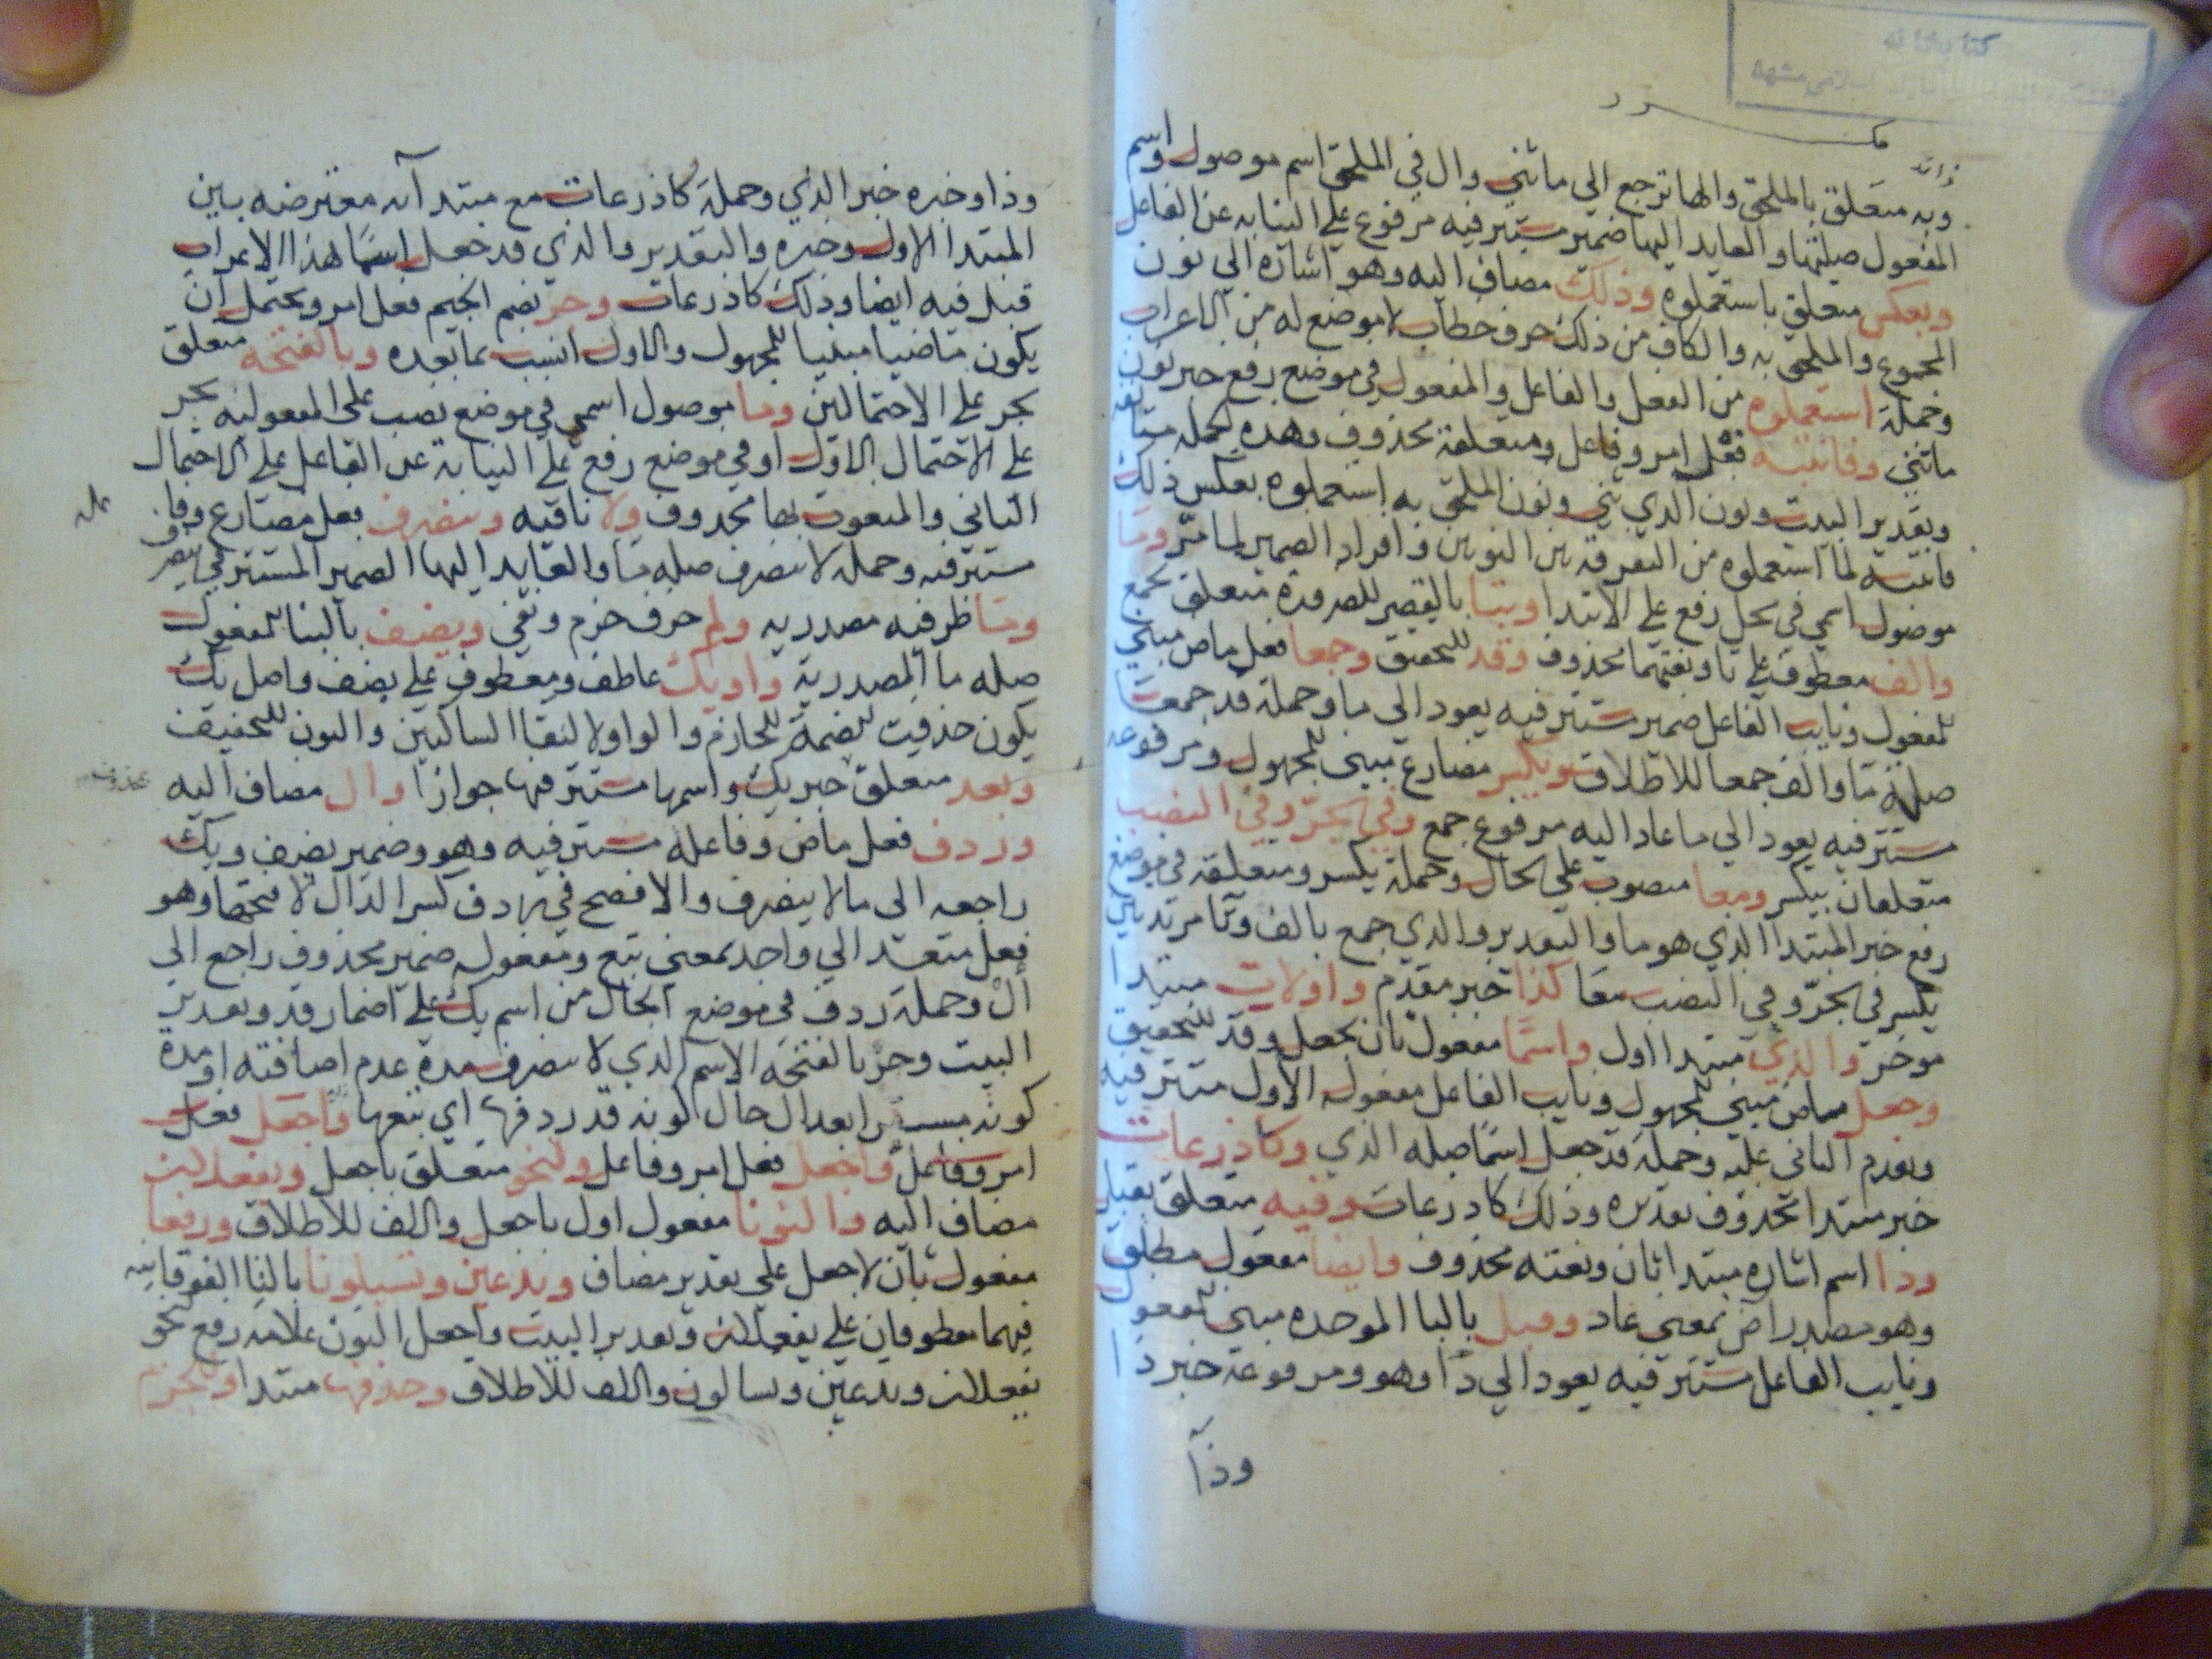 كتابخانه
مكرر
زائد
وبه متعلق بالملحق والها ترجع الي ما ثني وال في الملحق اسم موصول واسم
المفعول صلتها والعايد اليها ضمير مستتر فيه مرفوع علي النيابه عن الفاعل
وبعكس متعلق باستعملوه وذلك مضاف اليه وهو اشاره الي نون
المجموع والملحق به والكاف من ذلك حرف خطاب لا موضع له من الاعراب
وجملة استعملوه من الفعل والفاعل والمفعول في موضع رفع خبر نون
ما ثني وفانتبه فعل امر وفاعل ومتعلقه محذوف وهذه الجمله مستانفه
وتقدير البيت ونون الذي ثني ونون الملحق به استعملوه بعكس ذلك
فانتبه لما استعملوه من التفرقه بين النونين وافراد الضمير لما مر وما
موصول اسمي في محل رفع علي الابتدا وبتا بالقصر للضرورة متعلق بجمع
والف معطوف علي تا ونعتهما محذوف وقد للتحقيق وجمعا فعل ماض مبني
للمفعول ونايب الفاعل ضمير مستتر فيه يعود الي ما وجملة قد جمعت
صلة ما والف جمعا للاطلاق ويكسر مضارع مبني للمجهول ومرفوعه
مستتر فيه يعود الي ما عاد اليه مرفوع جمع وفي الجر وفي النصب
متعلقان بيكسر ومعا منصوب علي الحال وجملة يكسر ومتعلقه في موضع
رفع خبر المبتدا الذي هو ما والتقدير والذي جمع بالف وتا مزيدتين
يكسر في الجر وفي النصب معا كذا خبر مقدم واولات مبتدا
موخر والذي مبتدا اول واسما مفعول ثان بجعل وقد للتحقيق
وجعل ماض مبني للمجهول ونايب الفاعل مفعوله الاول مستتر فيه
وتقدم الثاني عليه وجملة قد جعل اسما صله الذي وكاذرعات
خبر مبتدا محذوف تقديره وذلك كاذرعات وفيه متعلق بقبل
وذا اسم اشاره مبتدا ثان ونعته محذوف وايضا مفعول مطلق
وهو مصدر اض بمعني عاد وقبل بالبا الموحده مبني للمفعول
ونايب الفاعل مستتر فيه يعود الي ذا وهو ومرفوعه خبر ذا
وذا
وذا وخبره خبر الذي وجملة كاذرعات مع مبتدائه معترضه بين
المبتدا الاول وخبره والتقدير والذي قد جعل اسما هذا الاعراب
قبل فيه ايضا وذلك كاذرعات وجر بضم الجيم فعل امر ويحتمل ان
يكون ماضيا مبنيا للمجهول والاول انسب بما بعده وبالفتحه متعلق
بجر علي الاحتمالين وما موصول اسمي في موضع نصب علي المفعوليه بجر
علي الاحتمال الاول او في موضع رفع علي النيابة عن الفاعل علي الاحتمال
الثاني والمنعوت بها محذوف ولا نافيه وينصرف فعل مضارع وفاعله
مستتر فيه وجملة لا ينصرف صله ما والعايد اليها الضمير المستتر في ينصرف
وما ظرفيه مصدريه ولم حرف جزم ونفي ويضف بالبنا للمفعول
صله ما المصدرية واويك عاطف ومعطوف علي يضف واصل يك
يكون حذفت الضمة للجازم والواو لالتقا الساكنين والنون للتخفيف
وبعد متعلق خبر يك واسمها مستتر فيها جوازا وال مضاف اليه
محذوف
وردف فعل ماض وفاعله مستتر فيه وهو وضمير يضف ويك
راجعه الي ما لا ينصرف والافصح في ردف كسر الدال لا فتحها وهو
فعل متعد الي واحد بمعني تبع ومفعوله ضمير محذوف راجع الي
أل وجملة ردف في موضع الحال من اسم يك علي اضمار قد وتقدير
البيت وجر بالفتحه الاسم الذي لا ينصرف مدة عدم اضافته او مدة
كونه مستقرا بعد ال حال كونه قد ردفها اي تبعها فاجعل فعل
امر وفاعل فاجعل فعل امر وفاعل ولنحو متعلق باجعل ويفعلان
مضاف اليه والنونا مفعول اول باجعل والالف للاطلاق ورفعا
مفعول ثان لاجعل علي تقدير مضاف وتدعين وتسالونا بالتا الفوقانيه
فيهما معطوفان علي يفعلان وتقدير البيت واجعل النون علامة رفع نحو
يفعلان وتدعين وتسالون والالف للاطلاق وحذفها مبتدا وللجزم